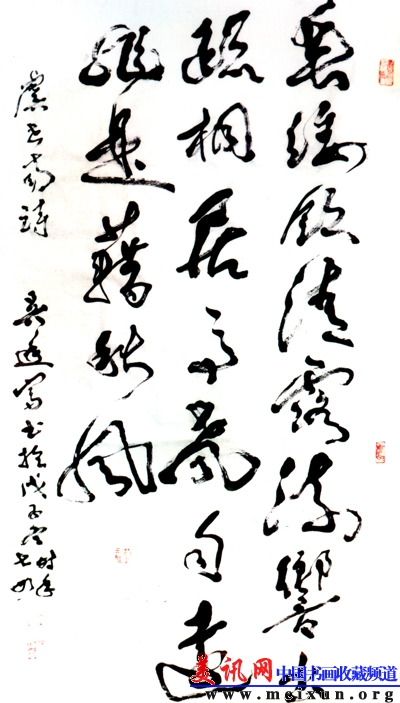 垂緌飲清露流響出
疏桐居高聲自遠
非是藉秋風
虞世南詩 吳進 書於戊子 時年
美讯网 中国书画收藏频道
www.meixun.org